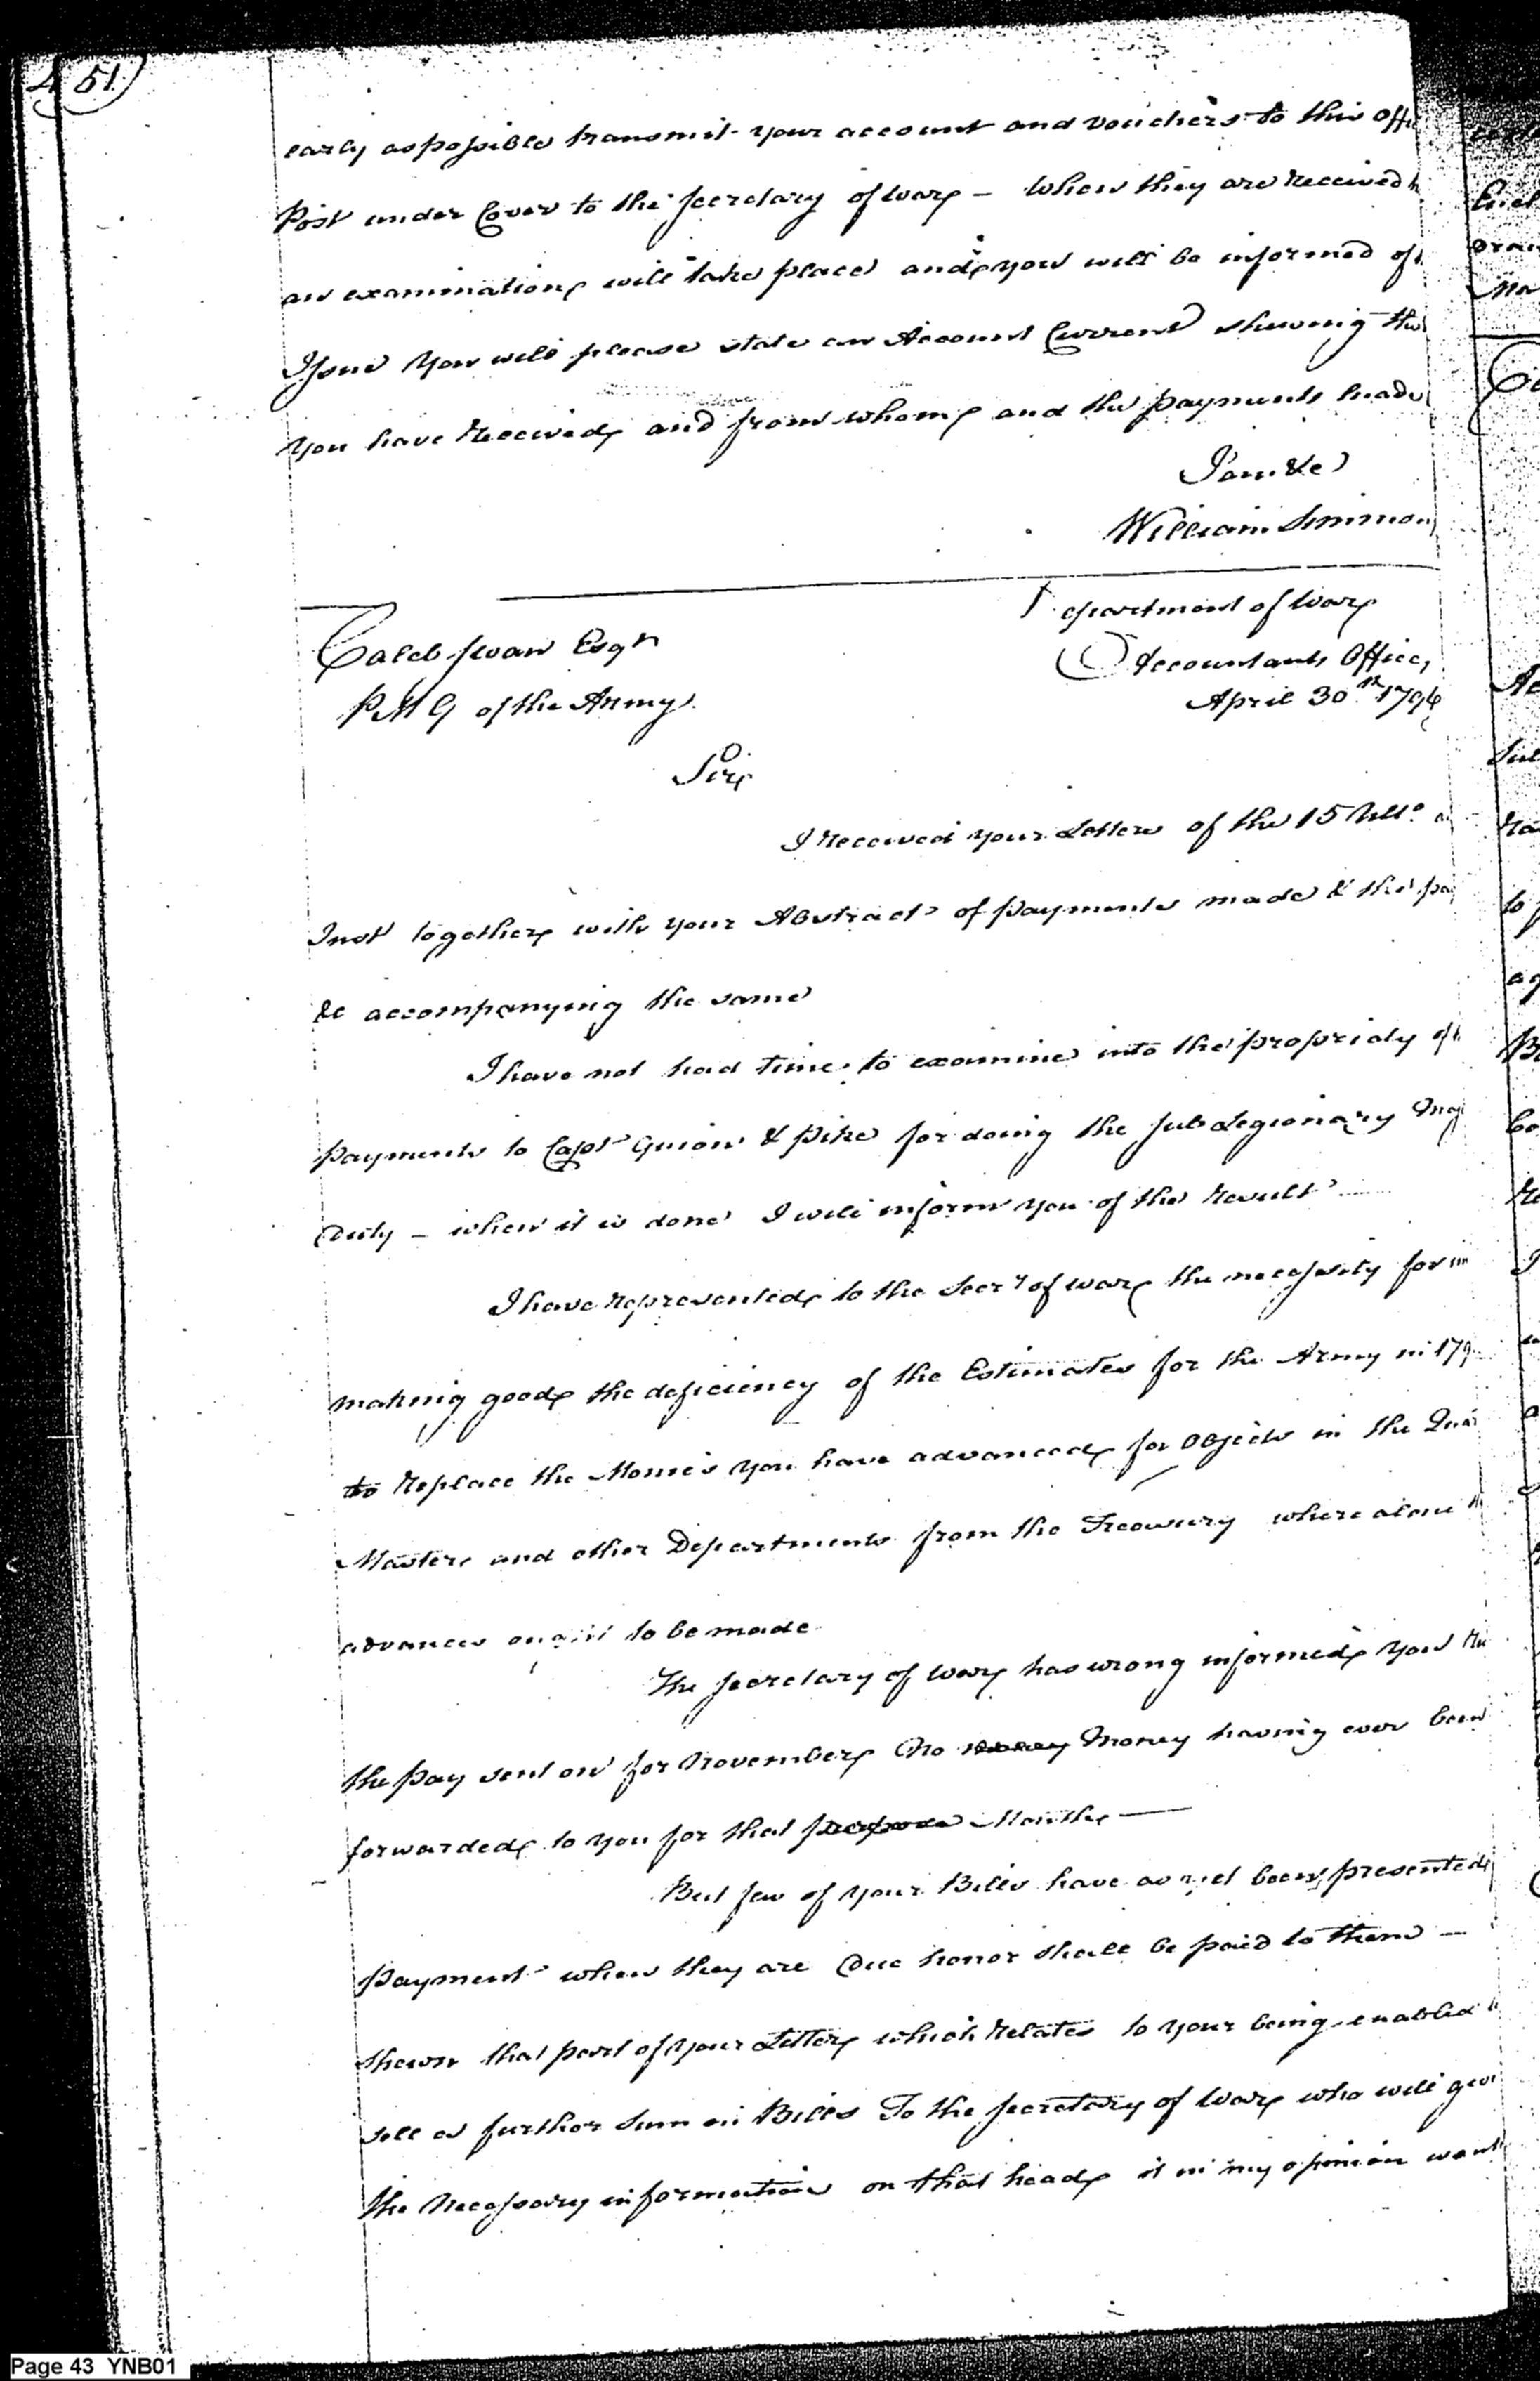 451
early as possible transmit your account and vouchers to this offi
Post under Cover to the Secretary of War – when they are Received
an examination will take place and you will be informed of
Issue You will please state an Account Current shewing the
You have Received and from whom and the payments made
I am &c
William Simmon
Department of War
Caleb Swan Esqr
Accountants Office,
P M G of the Army
April 30th 1796
Sir
I Received your Letters of the 15 Ulto a
Inst together with your Abstract of payments made & the pa
&c accompanying the same
I have not had time to examine into the propriety of
payments to Capt Guion & Pike for doing the Sub Legionary
Duty – when it is done I will inform you of the Result
I have Represented to the Secry of war the necessity for
making good the deficiency of the Estimates for the Army in 179
to Replace the Monies you have advanced for Objects in the Qua
Masters and other Departments from the Treasury where alone
advances ought to be made
The Secretary of War has wrong informed you
the pay sent on for November No money Money having ever been
forwarded to you for that purpose Month –
But few of your Bills have as yet been presented
payment when they are Due honor shall be paid to them –
shewn that part of your Letter which Relates to your being enabled
sell a further Sum in Bills To the Secretary of War who will give
the Necessary information on that head it in my opinion
Page 43 YNB01